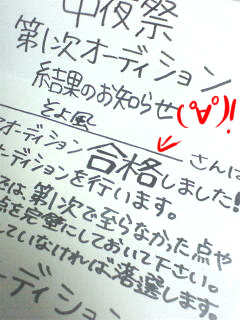 中夜祭
第1次オーディション
結果のお知らせ
(°A°)!
そよ風 さんは
オーディション合格しました!
オーディションを行います。
では第1次で至らなかった点や
点を完璧にしておいて下さい。
していなければ落選します。
オーディション